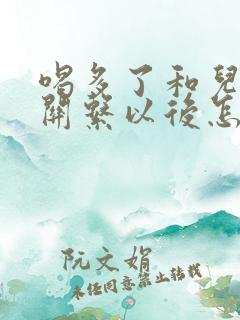 喝多了和兒
關繫以後怎
阮文娟
未经同意禁止转载